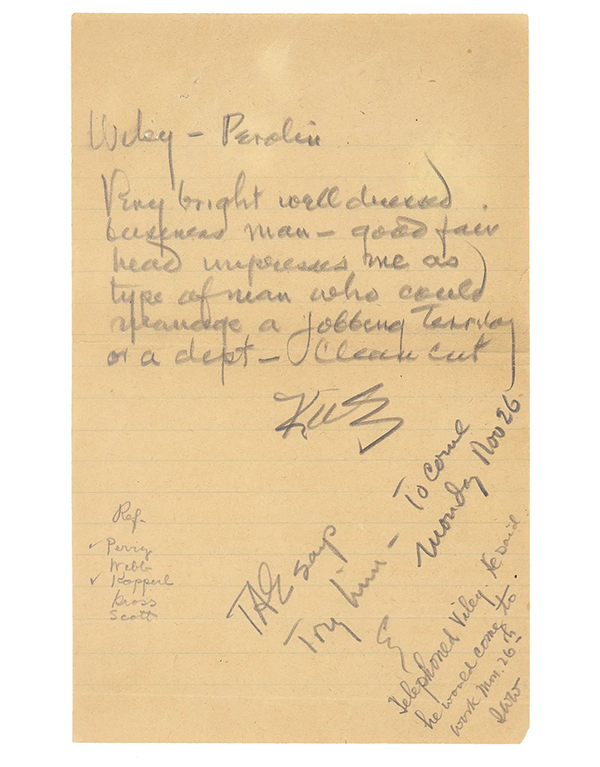 Viley – Perolin
Very bright well dressed
business man – good fair
head impresses me as
type of man who could
manage a jobbing Territory
or a dept – Clean cut
Ref.
✓ Perry
Webb
✓ Kopperl
Kross
Scott
TAE says
Try him – To come
Monday Nov 26.
Telephoned Viley. He said
he would come to
work Mon. 26th